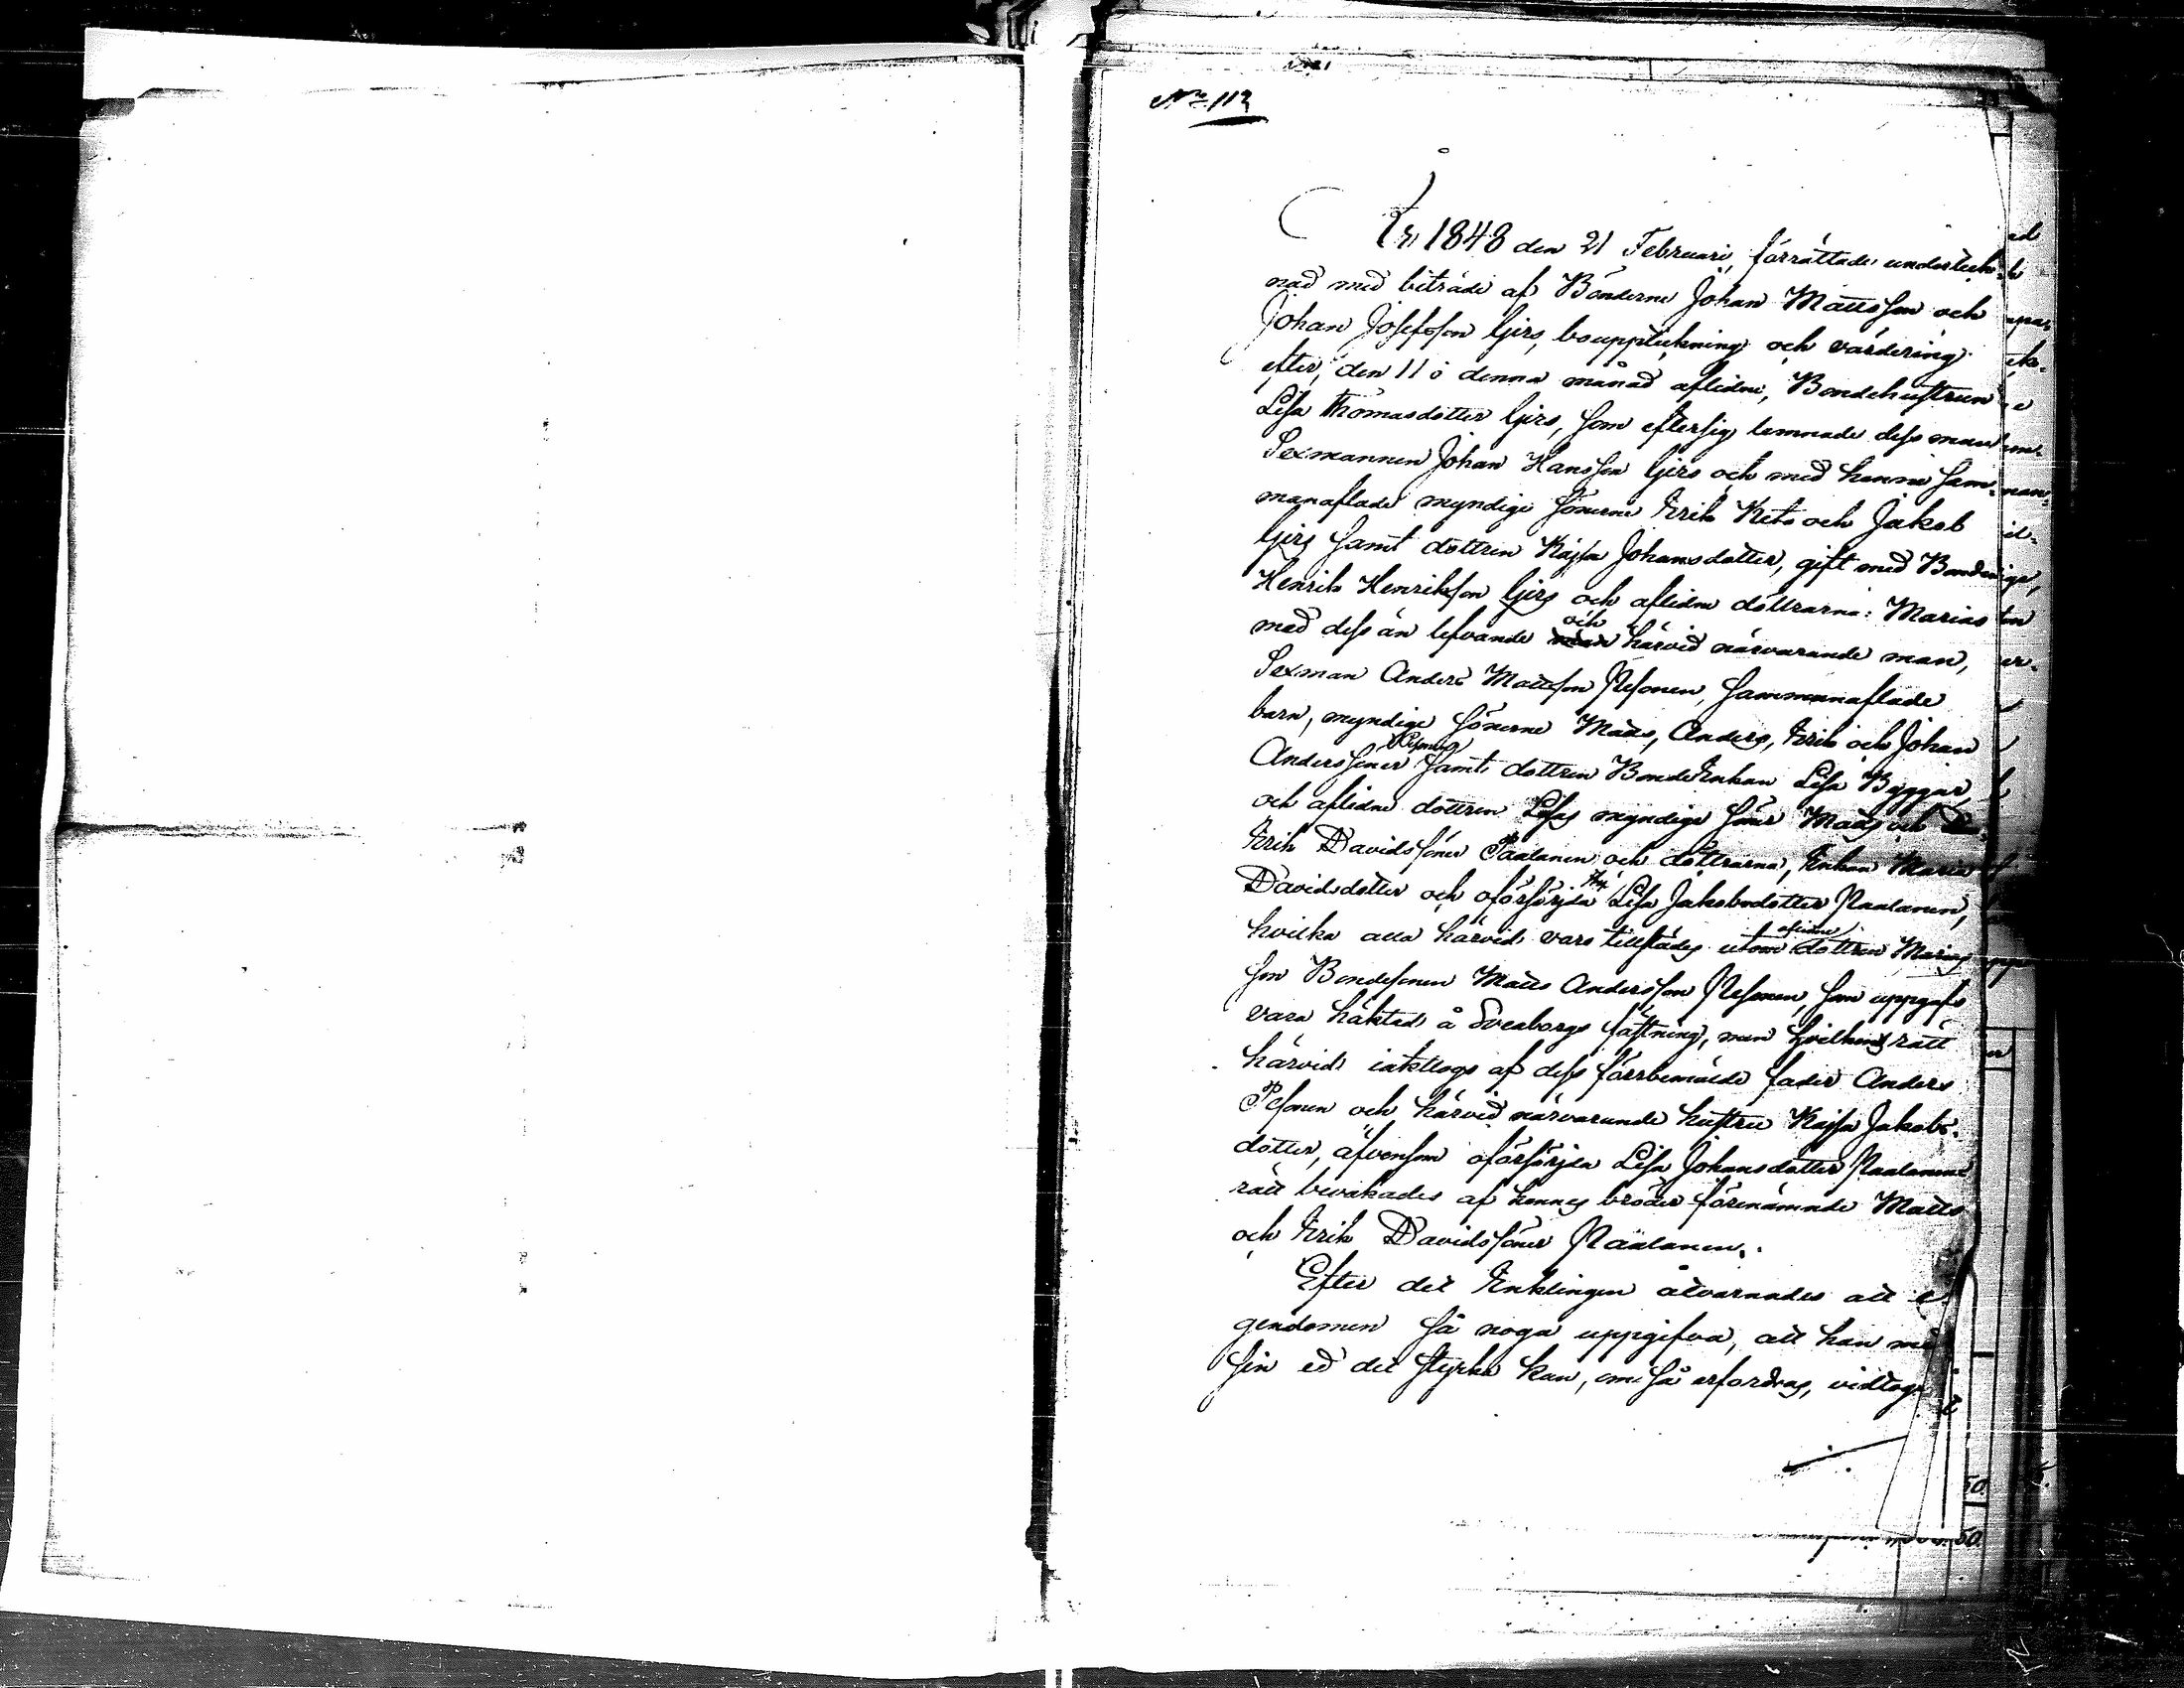 No 112
År 1848 den 21 Februari, förrättade underteck-
nad med biträde af Bönderne Johan Mattsson och
Johan Josefsson Girs, bouppteckning och värdering
efter, den 11 i denna månad aflidne, Bondehustrun
Lisa Thomasdotter Girs, som eftersig lemnade dess man
Sexmannen Johan Hansson Girs och med henne sam-
manaflade myndige sönerne Erik Keto och Jakob
Girs samt dottren Kajsa Johansdotter, gift med Bonden
Henrik Henriksson Girs och aflidne döttrarna: Marias
med dess än lefvande och härvid närvarande man,
Sexman Anders Mattsson Pesonen, sammanaflade
barn, myndige sönerne Matts, Anders, Erik och Johan
Anderssöner Pesonen samt dottren BondeEnkan Lisa Byggar,
och aflidne dottren Lisas myndige söner Matts och
Erik Davidssöner Päälanen och döttrarna, Enkan Maria
Davidsdotter och oförsörjda Lisa Jakobsdotter Päälanen,
hvilka alla härvid voro tillstädes utom aflidne dottren Marias
son Bondesonen Matts Andersson Pesonen, som uppgafs
vara häktad å Sveaborgs fästning, men hvilkens rätt
härvid iakttogs af dess förrbemälde fader Anders
Pesonen och härvid närvarande hustru Kajsa Jakobs-
dotter, äfvensom oförsörjda Lisa Johansdotter Päälanens
rätt bevakades af hennes bröder förenämnde Matts
och Erik Davidssöner Päälanen.
Efter det Enklingen åtvarnades att e-
gendomen så noga uppgifva, att han med
sin ed det styrka kan, om så erfordras, vidtogs